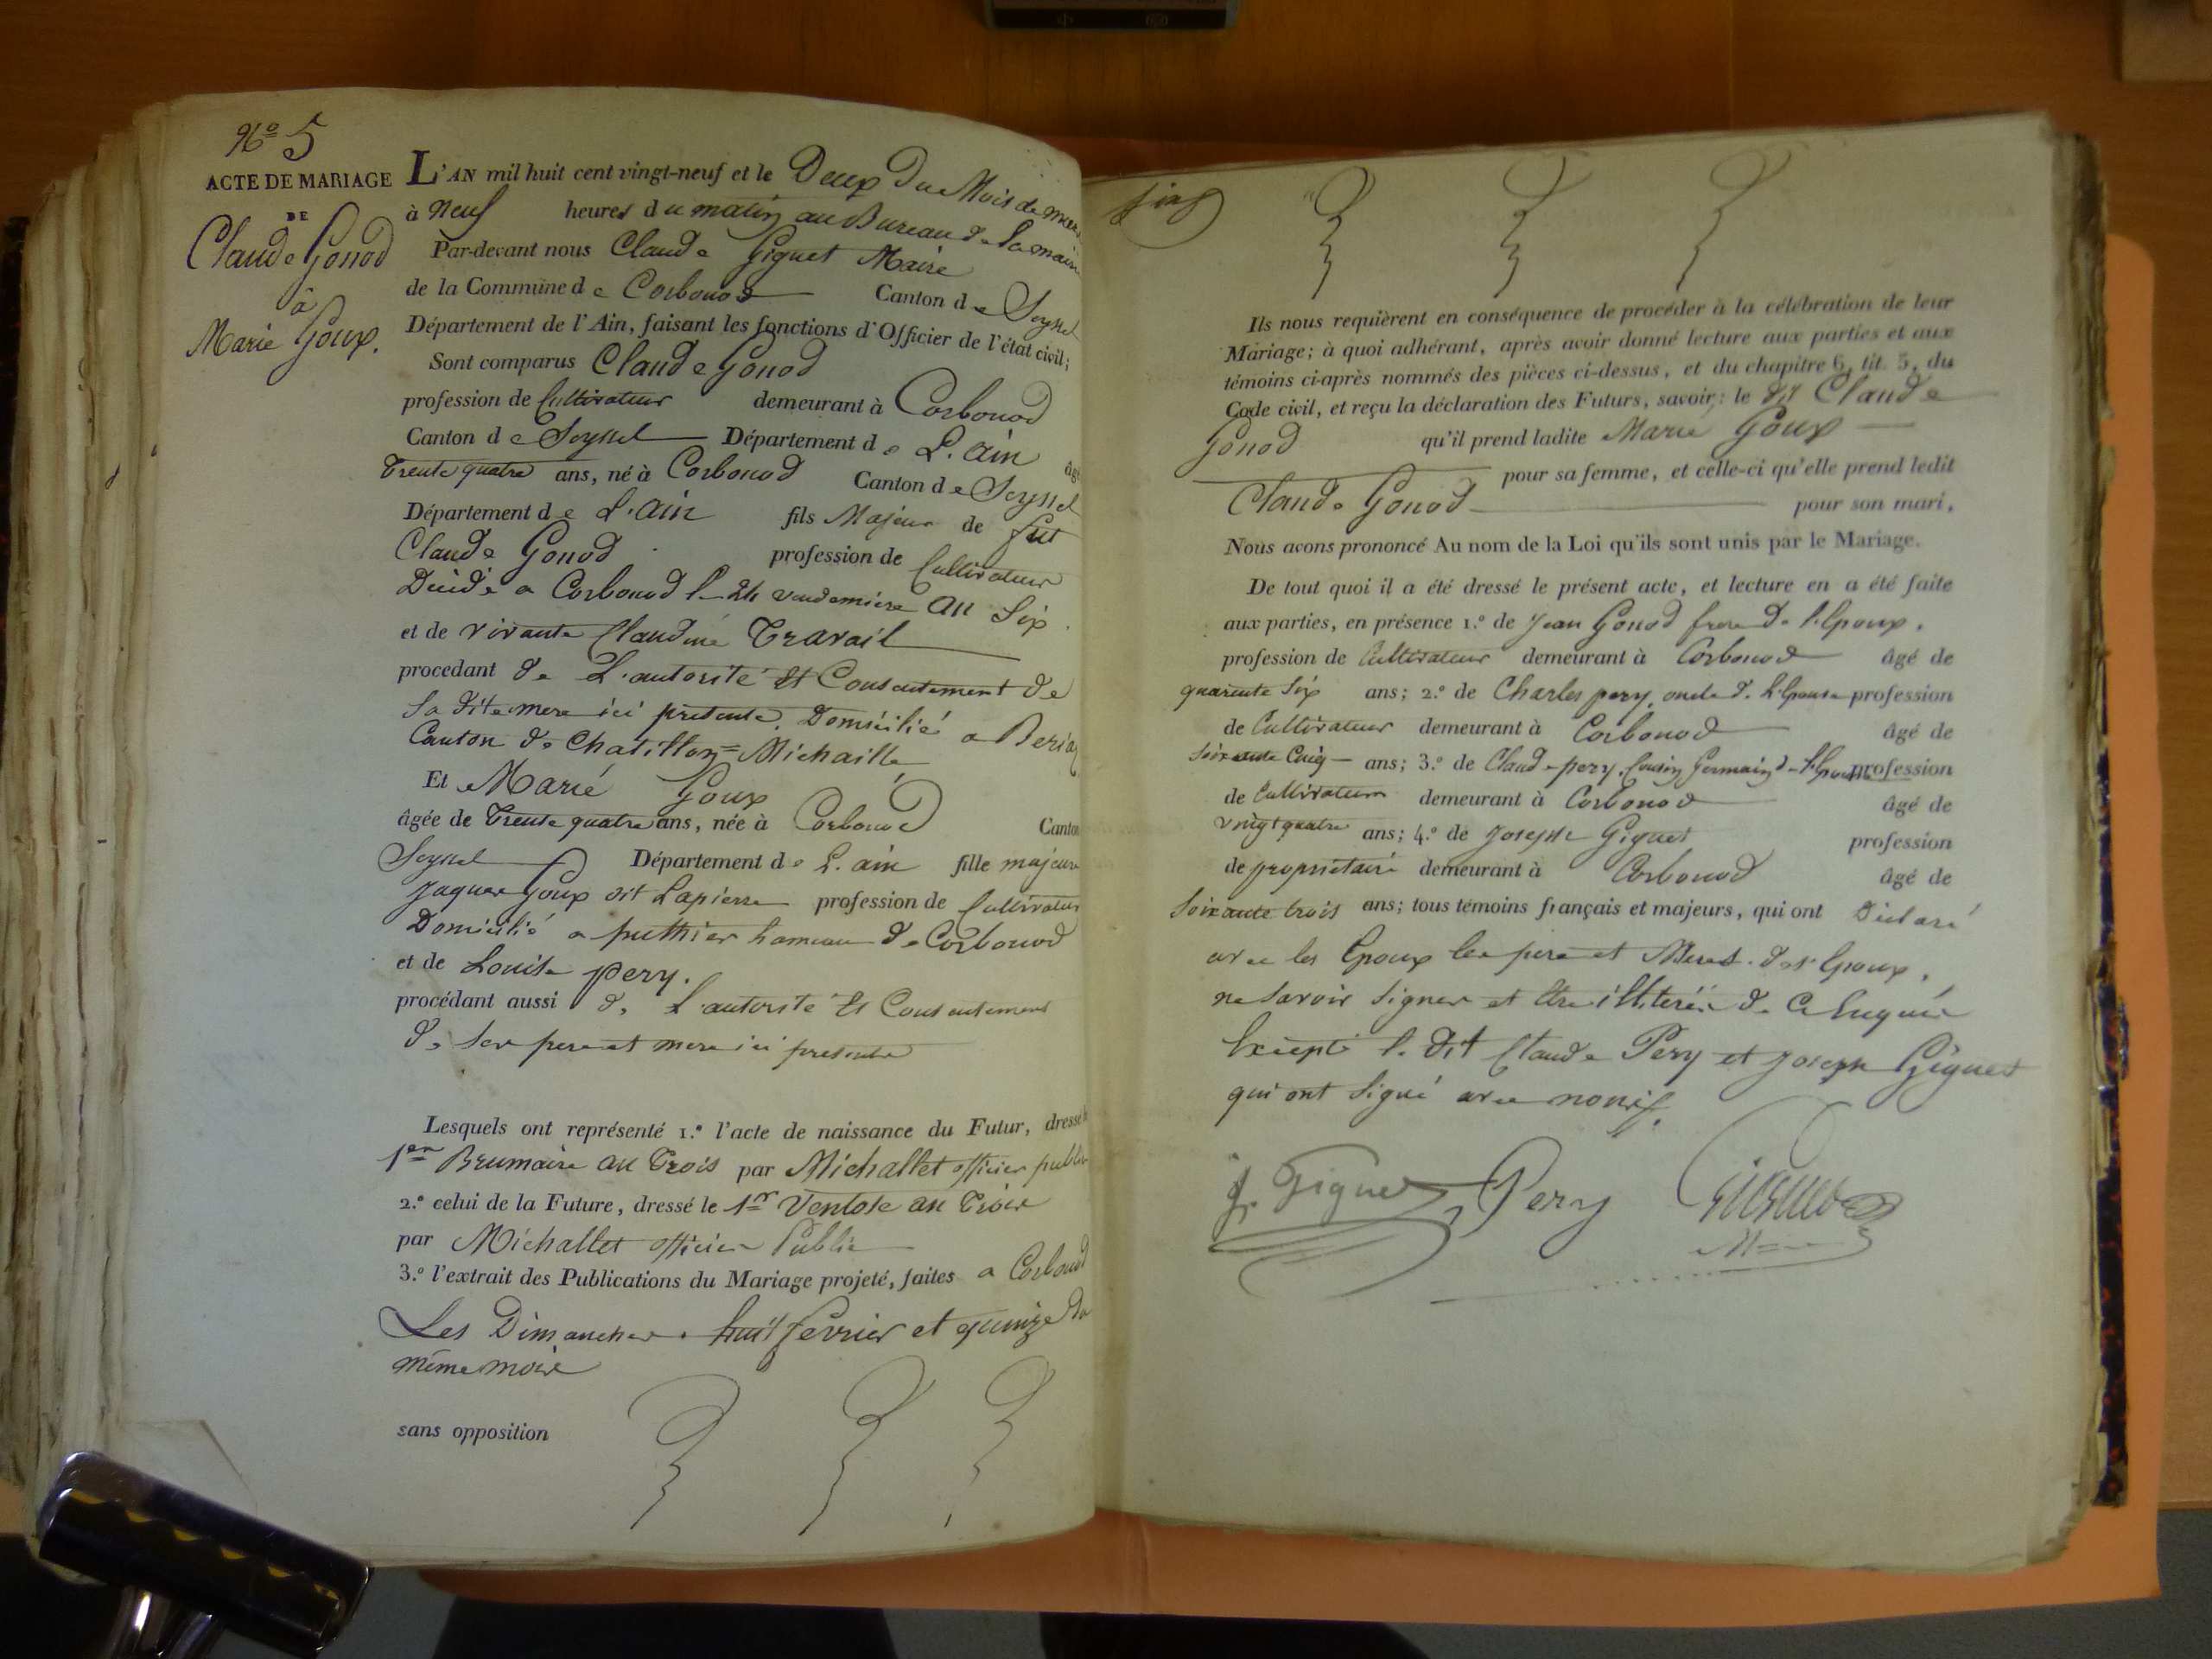 No 5
ACTE DE MARIAGE
DE
Claude Gonod
à
Marie Goux.
L'AN mil huit cent vingt-neuf et le Deux Du Mois de mars
à Neuf heures du matin au Bureau de la mairie
Par-devant nous Claude Giguet Maire
de la Commune de Corbonod Canton de Seyssel
Département de l'Ain, faisant les fonctions d'Officier de l'état civil;
Sont comparus Claude Gonod
profession de Cultivateur demeurant à Corbonod
Canton de Seyssel Département de L'ain âgé
Trente quatre ans, né à Corbonod Canton de Seyssel
Département de L'Ain fils Majeur de fut
Claude Gonod profession de Cultivateur
Décédé a Corbonod le 24 vendemiere an Six
et de vivante Claudine Travail
procedant de L'autorité Et Consentement de
Sa dite mere ici presente. Domicilié a
Canton de Chatillon=Michaille
Et Marie Goux
âgée de Trente quatre ans, née à Corbonod Canton
Seyssel Département de L'ain fille majeure
Jaques Goux dit Lapierre profession de Cultivateur
Domicilié a puthier hameau de Corbonod
et de Louise pery.
procédant aussi de L'autorité Et Consentement
de Ses pere et mere ici presents
Lesquels ont représenté 1.º l'acte de naissance du Futur, dressé le
1er Brumaire an Trois par Michallet officier public
2.º celui de la Future, dressé le 1er Ventose an Trois
par Michallet officier Public
3.º l'extrait des Publications du Mariage projeté, faites a Corbonod
Les Dimanches huit fevrier et quinze du
même mois
sans opposition
Ils nous requièrent en conséquence de procéder à la célébration de leur
Mariage; à quoi adhérant, après avoir donné lecture aux parties et aux
témoins ci-après nommés des pièces ci-dessus, et du chapitre 6, tit. 5, du
Code civil, et reçu la déclaration des Futurs, savoir: le dit Claude
Gonod qu'il prend ladite Marie Goux
pour sa femme, et celle-ci qu'elle prend ledit
Claude Gonod pour son mari,
Nous avons prononcé Au nom de la Loi qu'ils sont unis par le Mariage.
De tout quoi il a été dressé le présent acte, et lecture en a été faite
aux parties, en présence 1.º de Jean Gonod frere de l'Epoux,
profession de Cultivateur demeurant à Corbonod âgé de
quarente Six ans; 2.º de Charles pery, oncle d. L'Epouse profession
de Cultivateur demeurant à Corbonod âgé de
Soixante Cinq ans; 3.º de Claude pery, Cousin Germain d. l'Epouse profession
de Cultivateur demeurant à Corbonod âgé de
vingt quatre ans; 4.º de Joseph Giguet profession
de propriétaire demeurant à Corbonod âgé de
Soixante trois ans; tous témoins français et majeurs, qui ont Déclaré
avec les Epoux les pere et Meres des Epoux,
ne Savoir Signer et Etre illiterés de Ce Enquis
Excepté le dit Claude Pery et Joseph Giguet
qui ont Signé avec nous.
J. Giguet Pery Giguet